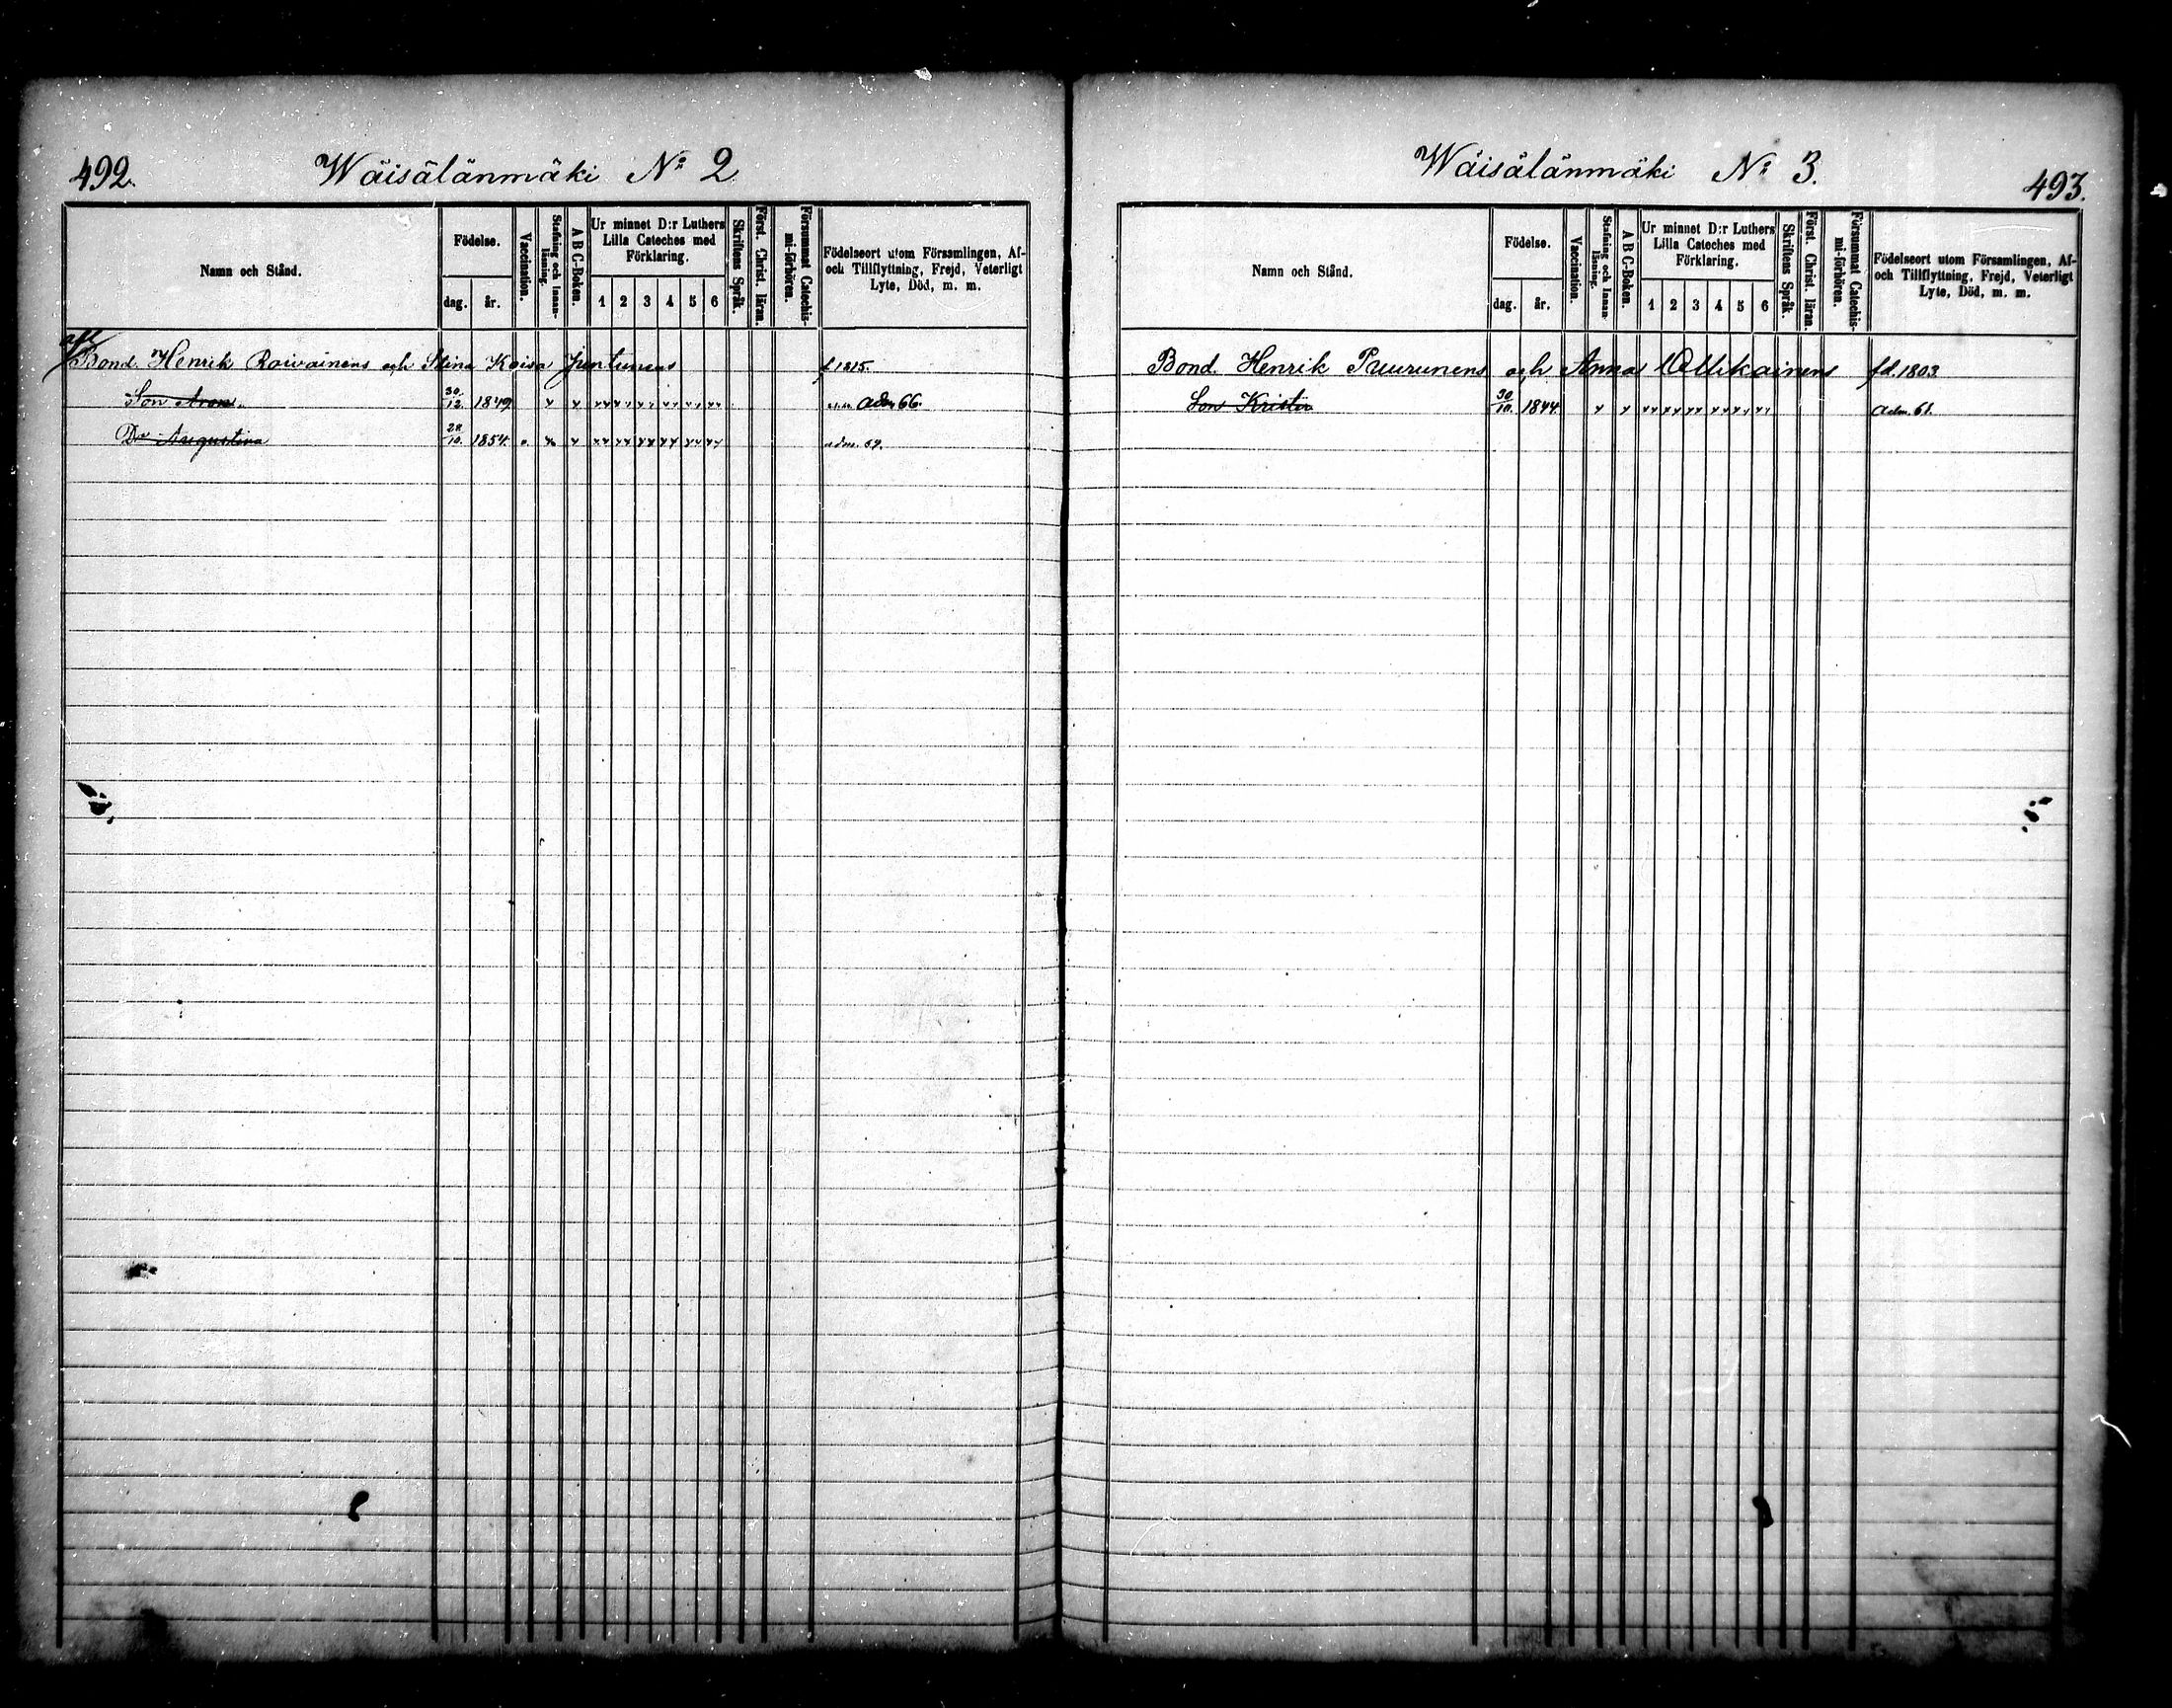 492.
Wäisälänmäki No 2
Namn och Stånd.
Födelse.
dag.
år.
Vaccination.
Stafning och Innan-
läsning.
A B C-Boken.
Ur minnet D:r Luthers
Lilla Cateches med
Förklaring.
1 2 3 4 5 6
Skriftens Språk.
Först. Christ. läran.
Försummat Catechis-
mi-förhören.
Födelseort utom Församlingen, Af-
och Tillflyttning, Frejd, Veterligt
Lyte, Död, m. m.
Bond. Henrik Raivainens och Stina Kaisa Juntunens f 1815.
Son Aron. 30/12. 1849 Adm 66.
Dr Augustina 28/10. 1854. adm. 69.
Wäisälänmäki No 3.
493.
Namn och Stånd.
Födelse.
dag.
år.
Vaccination.
Stafning och Innan-
läsning.
A B C-Boken.
Ur minnet D:r Luthers
Lilla Cateches med
Förklaring.
1 2 3 4 5 6
Skriftens Språk.
Först. Christ. läran.
Försummat Catechis-
mi-förhören.
Födelseort utom Församlingen, Af-
och Tillflyttning, Frejd, Veterligt
Lyte, Död, m. m.
Bond. Henrik Puurunens och Anna Ollikainens fd. 1803
Son Kristia 30/10. 1844 Adm. 61.